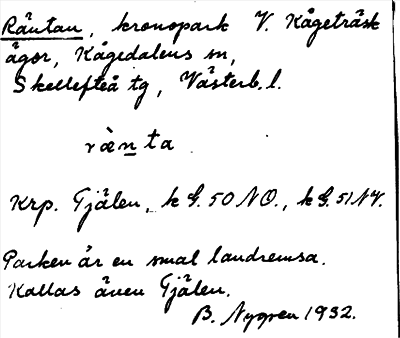 Räntan, kronopark V. Kågeträsk
ägor, Kågedalens sn,
Skellefteå tg, Västerb. l.
ræ̀nta
Krp. Tjälen, k G. 50 NO., k G. 51 NV.
Parken är en smal landremsa.
Kallas även Tjälen.
B. Nygren 1932.